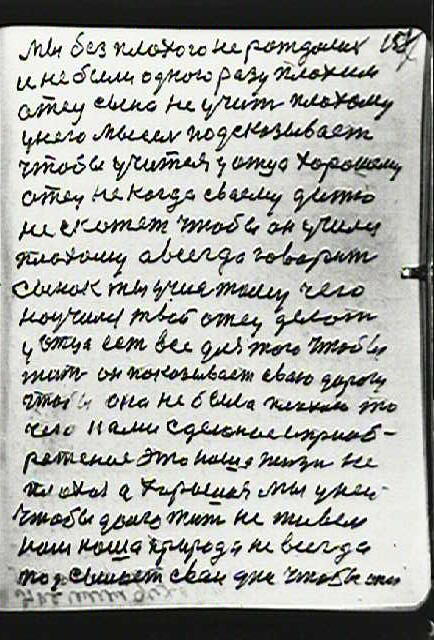 мы без плохого не рождались 157
и не были одного разу плохим
отец сына не учит плохому
у него мысль подсказывает
чтобы учится у отца хорошему
отец не когда сваему дитю
не скажет чтобы он учился
плохому а всегда говорит
сынок ты учис тому чего
научился твой отец делать
у отца ест все для того чтобы
жит он показывает сваю дорогу
чтобы она не была
чего нами сделоное и приоб-
ретеное это наша жизн не
плохая а хорошая мы у ней
чтобы долго жит не живем
нам наша природа не всегда
сваи дне чтобы они